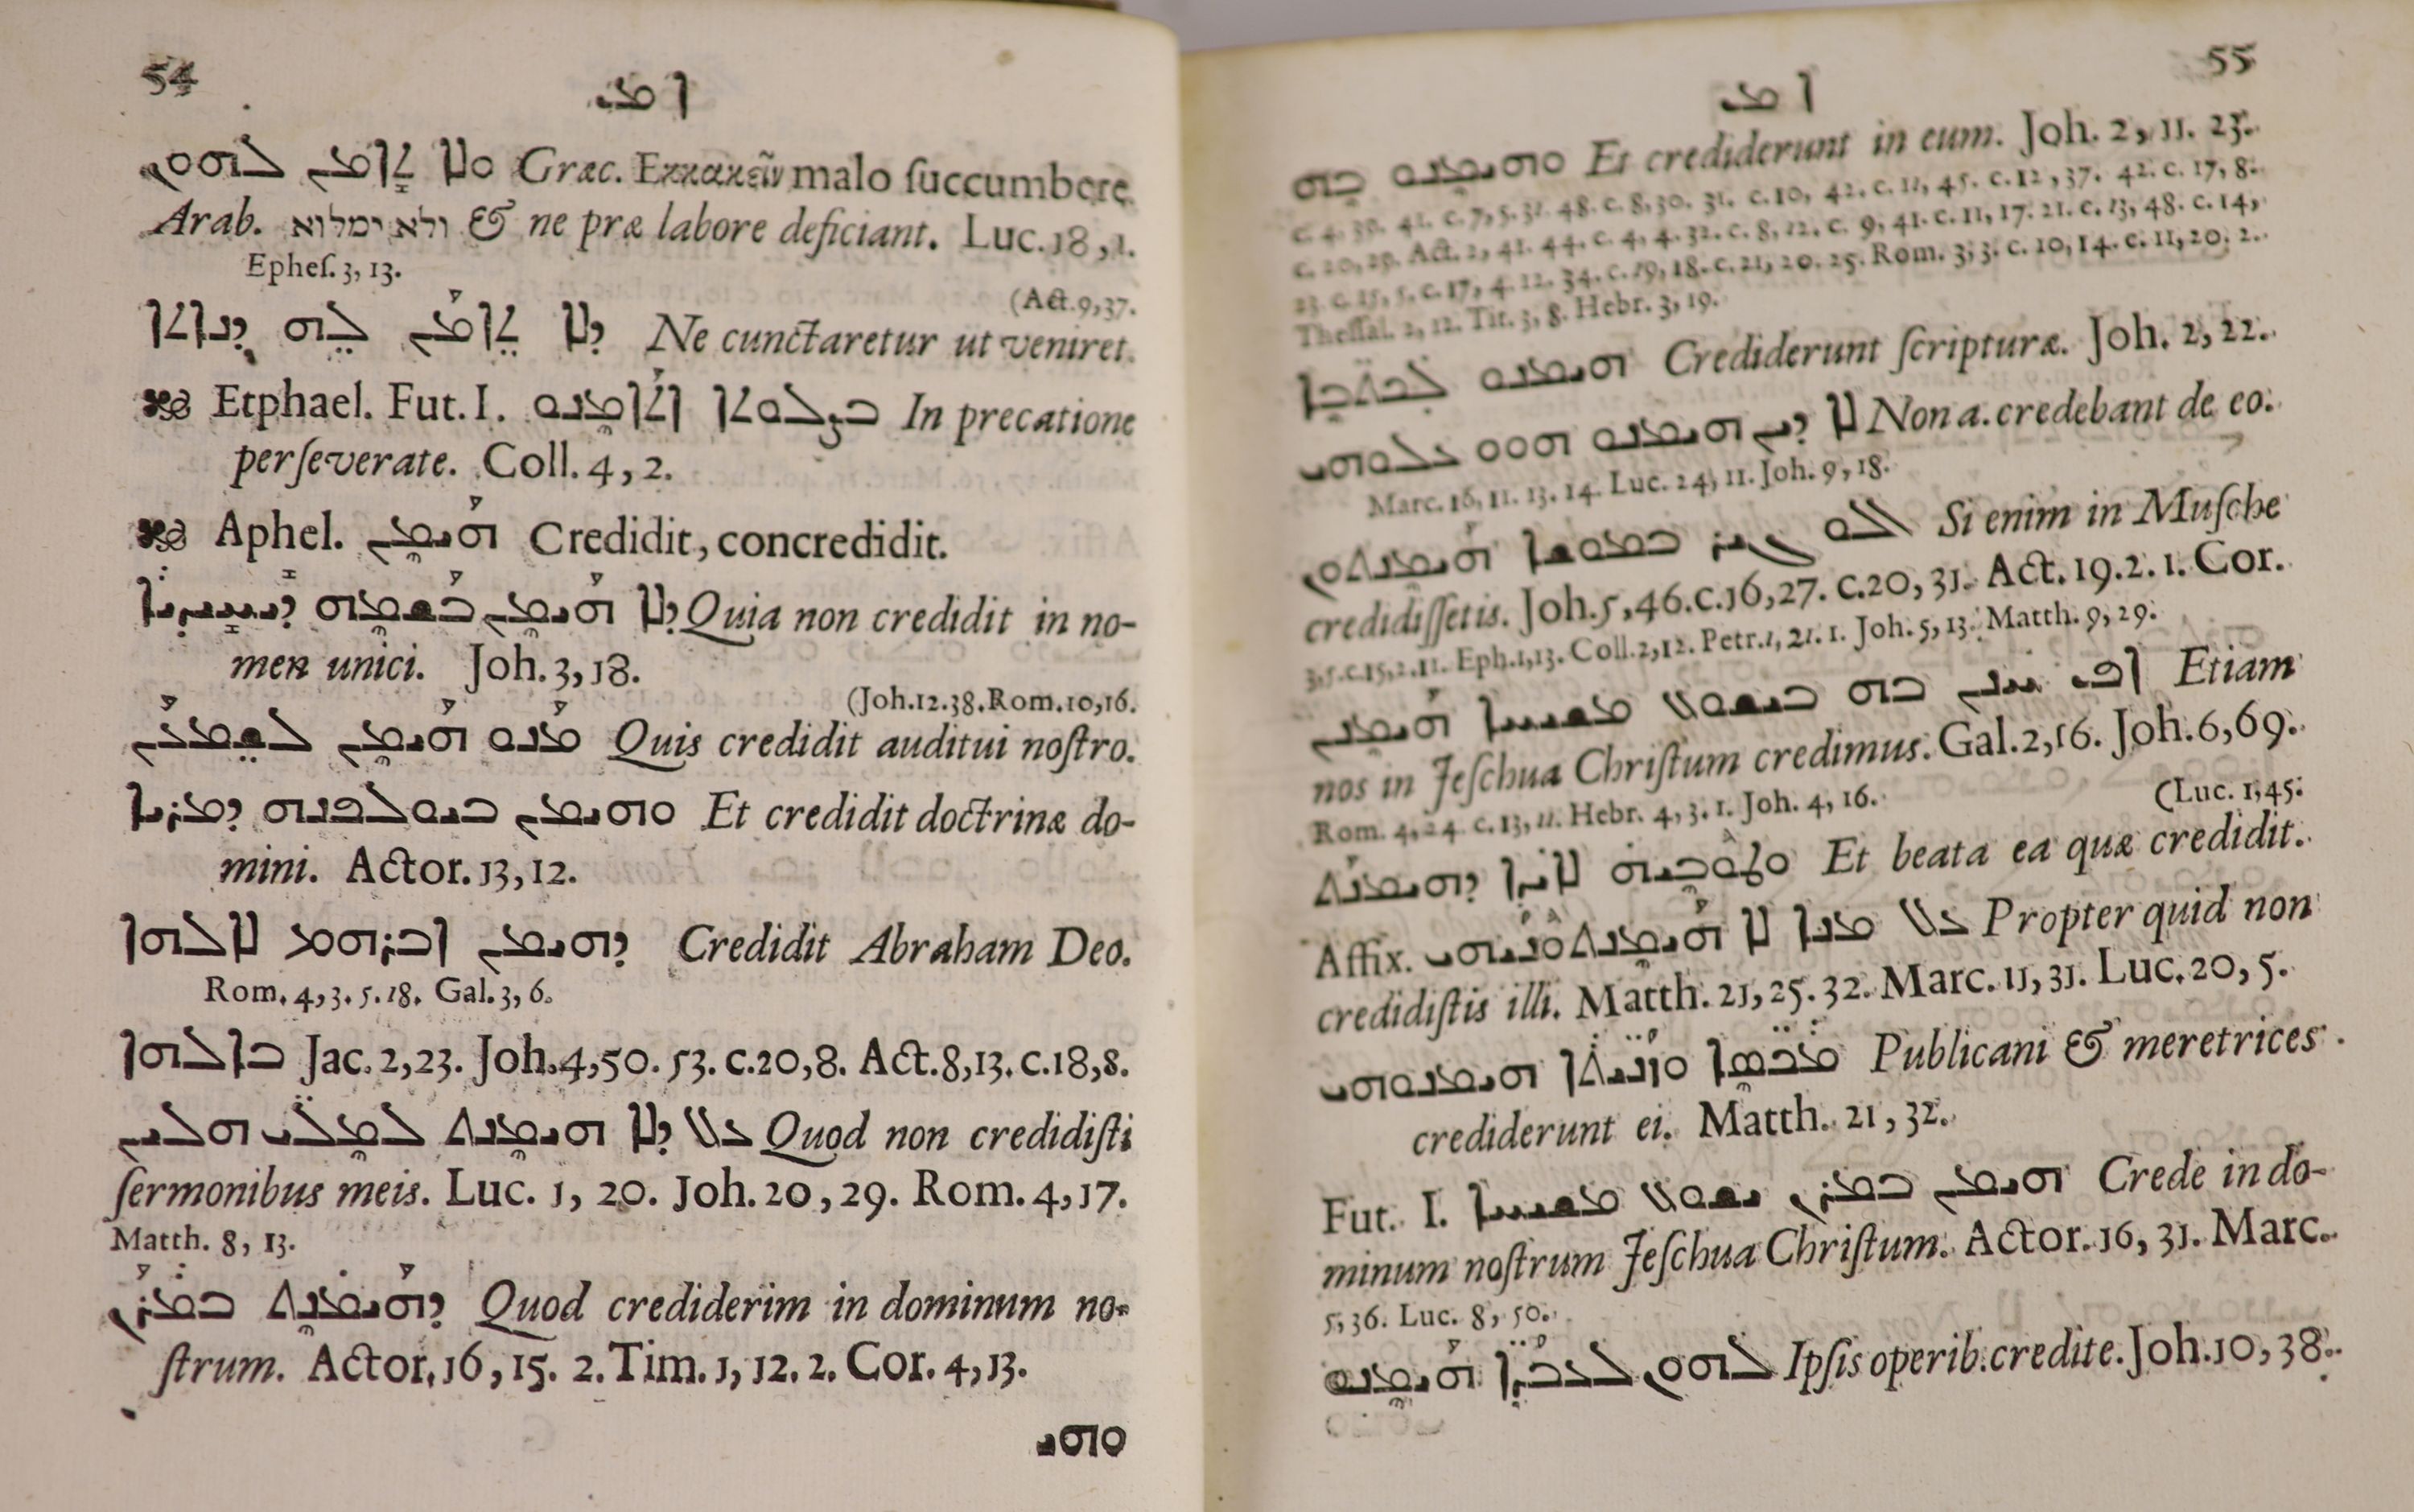 54
ܐ ܡܢ
ܘܠܐ ܬܐܡܢ ܠܗܘܢ Græc. Εκκακεῖν malo ſuccumbere
Arab. ולא ימלוא & ne præ labore deficiant. Luc. 18, 1.
Epheſ. 3, 13.
(Act. 9, 37.
ܕܠܐ ܬܐܡܢ ܠܗ ܕܢܐܬܐ Ne cunctaretur ut veniret.
Etphael. Fut. I. ܒܨܠܘܬܐ ܐܬܐܡܢܘ In precatione
perſeverate. Coll. 4, 2.
Aphel. ܗܝܡܢ Credidit, concredidit.
ܕܠܐ ܗܝܡܢ ܒܫܡܗ ܕܝܚܝܕܝܐ Quia non credidit in no-
men unici. Joh. 3, 18.
(Joh. 12. 38. Rom. 10, 16.
ܡܢܘ ܗܝܡܢ ܠܫܡܥܢ Quis credidit auditui noſtro.
ܘܗܝܡܢ ܒܝܘܠܦܢܗ ܕܡܪܝܐ Et credidit doctrinæ do-
mini. Actor. 13, 12.
ܕܗܝܡܢ ܐܒܪܗܡ ܠܐܠܗܐ Credidit Abraham Deo.
Rom. 4, 3. 5. 18. Gal. 3, 6.
ܒܐܠܗܐ Jac. 2, 23. Joh. 4, 50. 53. c. 20, 8. Act. 8, 13. c. 18, 8.
ܥܠ ܕܠܐ ܗܝܡܢܬ ܠܡܠܝ ܗܠܝܢ Quod non credidiſti
ſermonibus meis. Luc. 1, 20. Joh. 20, 29. Rom. 4, 17.
Matth. 8, 13.
ܕܗܝܡܢܬ ܒܡܪܢ Quod crediderim in dominum no-
ſtrum. Actor. 16, 15. 2. Tim. 1, 12. 2. Cor. 4, 13.
ܘܗܝ
55
ܐ ܡܢ
ܘܗܝܡܢܘ ܒܗ Et crediderunt in eum. Joh. 2, 11. 23.
c. 4. 39. 41. c. 7, 5. 31. 48. c. 8, 30. 31. c. 10, 42. c. 11, 45. c. 12, 37. 42. c. 17, 8.
c. 20, 29. Act. 2, 41. 44. c. 4, 4. 32. c. 8, 12. c. 9, 41. c. 11, 17. 21. c. 13, 48. c. 14,
23. c. 15, 5. c. 17, 4. 12. 34. c. 19, 18. c. 21, 20. 25. Rom. 3, 3. c. 10, 14. c. 11, 20. 2.
Theſſal. 2, 12. Tit. 3, 8. Hebr. 3, 19.
ܗܝܡܢܘ ܠܟܬܒܐ Crediderunt ſcripturæ. Joh. 2, 22.
ܠܐ ܕܝܢ ܗܝܡܢܘ ܗܘܘ ܥܠܘܗܝ Non a. credebant de eo.
Marc. 16, 11. 13. 14. Luc. 24, 11. Joh. 9, 18.
ܐܠܘ ܓܝܪ ܒܡܘܫܐ ܗܝܡܢܬܘܢ Si enim in Muſche
credidiſſetis. Joh. 5, 46. c. 16, 27. c. 20, 31. Act. 19. 2. 1. Cor.
3, 5. c. 15, 2. 11. Eph. 1, 13. Coll. 2, 12. Petr. 1, 21. 1. Joh. 5, 13. Matth. 9, 29.
ܐܦ ܚܢܢ ܒܗ ܒܝܫܘܥ ܡܫܝܚܐ ܗܝܡܢܢ Etiam
nos in Jeſchua Chriſtum credimus. Gal. 2, 16. Joh. 6, 69.
Rom. 4, 24. c. 13, 11. Hebr. 4, 3. 1. Joh. 4, 16.
(Luc. 1, 45.
ܘܛܘܒܝܗ ܠܐܝܕܐ ܕܗܝܡܢܬ Et beata ea quæ credidit.
Affix. ܥܠ ܡܢܐ ܠܐ ܗܝܡܢܬܘܢܝܗܝ Propter quid non
credidiſtis illi. Matth. 21, 25. 32. Marc. 11, 31. Luc. 20, 5.
ܡܟܣܐ ܘܙܢܝܬܐ ܗܝܡܢܘܗܝ Publicani & meretrices
crediderunt ei. Matth. 21, 32.
Fut. I. ܗܝܡܢ ܒܡܪܢ ܝܫܘܥ ܡܫܝܚܐ Crede in do-
minum noſtrum Jeſchua Chriſtum. Actor. 16, 31. Marc.
5, 36. Luc. 8, 50.
ܠܗܘܢ ܠܥܒܕܐ ܗܝܡܢܘ Ipſis operib. credite. Joh. 10, 38.